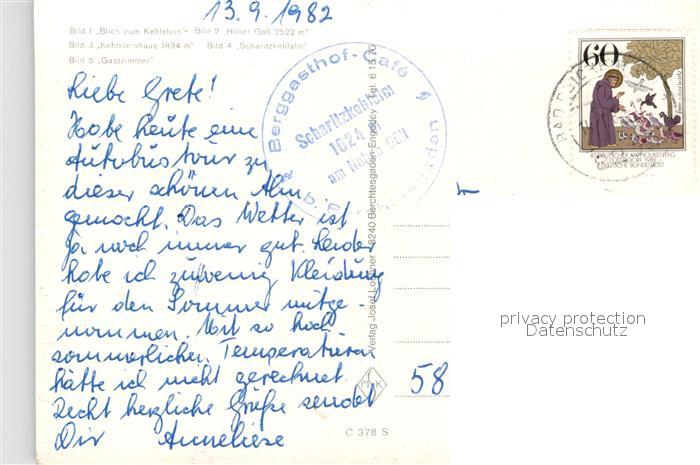 13.9.1982
Bild 1 „Blick zum Kehlstein“ Bild 2 „Hoher Göll 2522 m“
Bild 3 „Kehlsteinhaus 1834 m“ Bild 4 „Scharitzkehlalm“
Bild 5 „Gastzimmer“
Liebe Grete!
Habe heute eine
Autobustour zu
dieser schönen Alm
gemacht. Das Wetter ist
ja noch immer gut. Leider
habe ich zuwenig Kleidung
für den Sommer mitge-
nommen. Mit so hoch
sommerlichen Temperaturen
hätte ich nicht gerechnet.
Recht herzliche Grüße sendet
Dir Anneliese
Berggasthof-Café
Scharitzkehlalm
1024 m
am Hohen Göll
Verlag Josef 8240 Berchtesgaden Tel. 61570
C 378 S
60
DEUTSCHE BUNDESPOST
58
privacy protection
Datenschutz